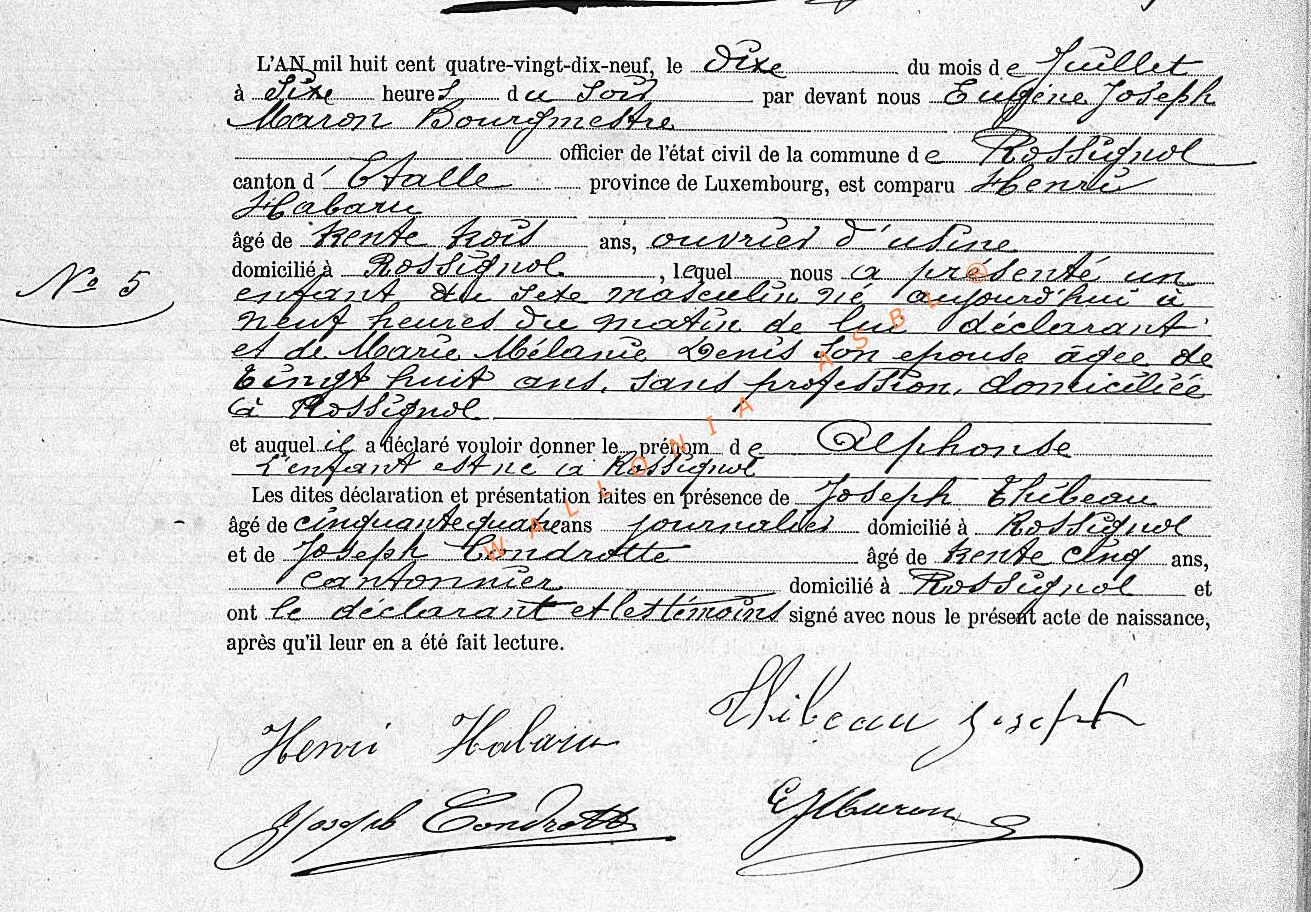 L'AN mil huit cent quatre-vingt-dix-neuf, le dixe du mois de Juillet
à sixe heures du soir par devant nous Eugène Joseph
Maron Bourgmestre
officier de l'état civil de la commune de Rossignol
canton d' Etalle province de Luxembourg, est comparu Henri
Habaru
âgé de trente trois ans, ouvrier d'usine
domicilié à Rossignol, lequel nous a présenté un
No 5
enfant du sexe masculin né aujourd'hui à
neuf heures du matin de lui déclarant
et de Marie Mélanie Denis son epouse âgée de
vingt huit ans, sans profession, domiciliée
à Rossignol
et auquel il a déclaré vouloir donner le prénom de Alphonse
L'enfant est né à Rossignol
Les dites déclaration et présentation faites en présence de Joseph Thibeau
âgé de cinquante quatre ans journalier domicilié à Rossignol
et de Joseph Condrotte âgé de trente cinq ans,
cantonnier domicilié à Rossignol et
ont le déclarant et les témoins signé avec nous le présent acte de naissance,
après qu'il leur en a été fait lecture.
WALLONIA ASBL @
Thibeau Joseph
Henri Habaru
Joseph Condrotte EJMaron